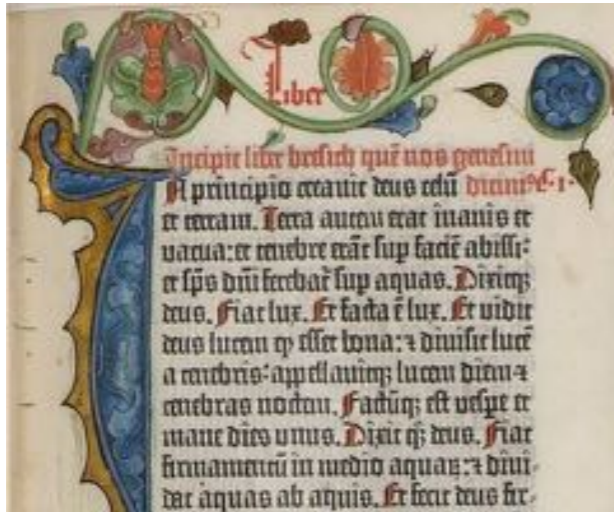 Liber
Incipit liber bresich quē nos genesim
In principio creavit deus celū dicim⁹ c̄. 1.
et terram. Terra autem erat inanis et
vacua: et tenebre erāt sup faciē abissi:
et sp̄s dn̄i ferebat᷑ sup aquas. Dixitq;
deus. Fiat lux. Et facta ē lux. Et vidit
deus lucem ꝙ esset bona: ⁊ divisit lucē
a tenebris: appellavitq; lucem diem ⁊
tenebras noctem. Factūq; est vespe et
mane dies unus. Dixit q̄; deus. Fiat
firmamentū in medio aquaꝝ: ⁊ divi-
dat aquas ab aquis. Et fecit deus fir-